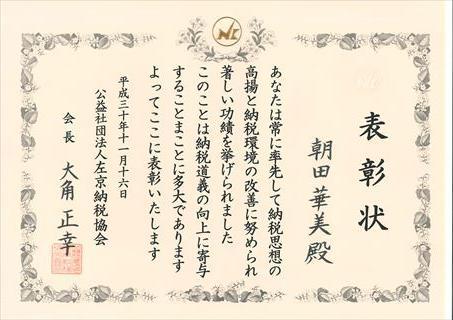 表彰状
朝田華美殿
あなたは常に率先して納税思想の
高揚と納税環境の改善に努められ
著しい功績を挙げられました
このことは納税道義の向上に寄与
することまことに多大であります
よってここに表彰いたします
平成三十年十一月十六日
公益社団法人左京納税協会
会長 大角正幸